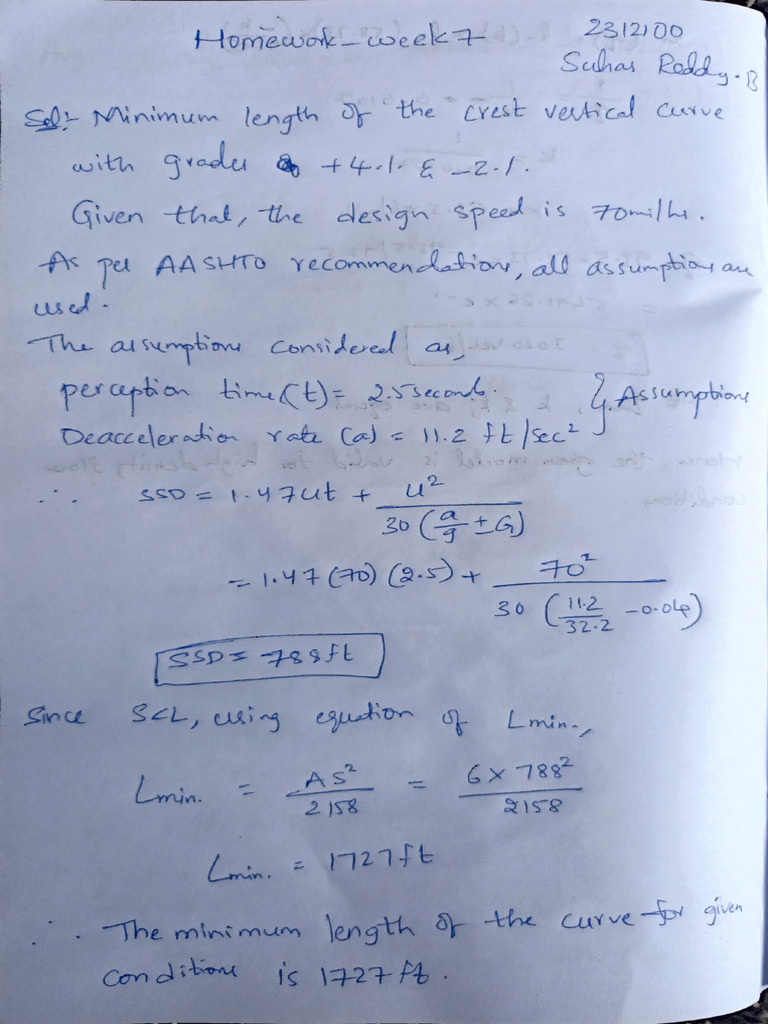 Homework - week 7 2312100
Suhas Reddy. B
Sol:- Minimum length of the crest vertical curve
with grades +4.1. & -2.1.
Given that, the design speed is 70mi/hr.
As per AASHTO recommendations, all assumptions are
used.
The assumptions considered as,
perception time(t) = 2.5seconds. } Assumptions
Deacceleration rate (a) = 11.2 ft/sec²
∴ SSD = 1.47ut + u² / 30 (a/g ± G)
= 1.47 (70) (2.5) + 70² / 30 (11.2/32.2 - 0.04)
SSD = 788ft
Since S<L, using equation of Lmin.,
Lmin. = AS²/2158 = 6 × 788²/2158
Lmin. = 1727ft
∴ The minimum length of the curve for given
conditions is 1727 ft.